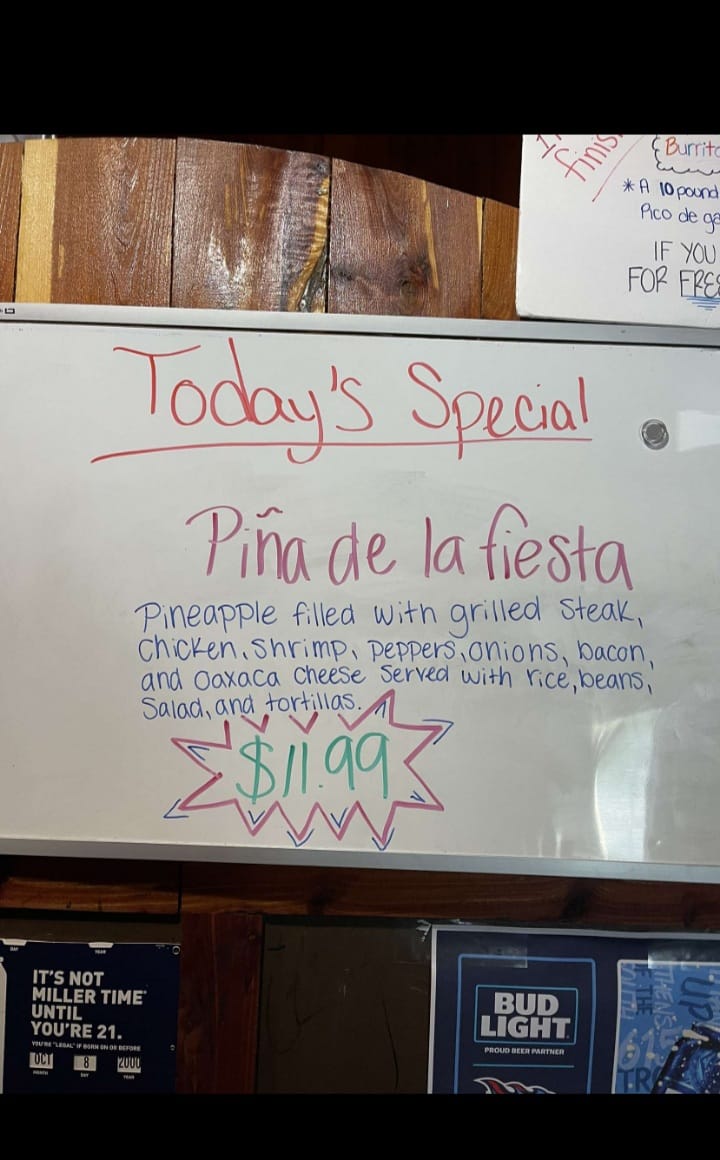 finis
Burrito
* A 10 pound
Pico de ga
IF YOU
FOR FREE
Today's Special
Piña de la fiesta
Pineapple filled with grilled steak,
chicken, shrimp, peppers, onions, bacon,
and oaxaca cheese served with rice, beans,
Salad, and tortillas.
$11.99
DAY
YEAR
IT'S NOT
MILLER TIME
UNTIL
YOU'RE 21.
YOU'RE "LEGAL" IF BORN ON OR BEFORE
OCT 8 2000
MONTH DAY YEAR
BUD
LIGHT
PROUD BEER PARTNER